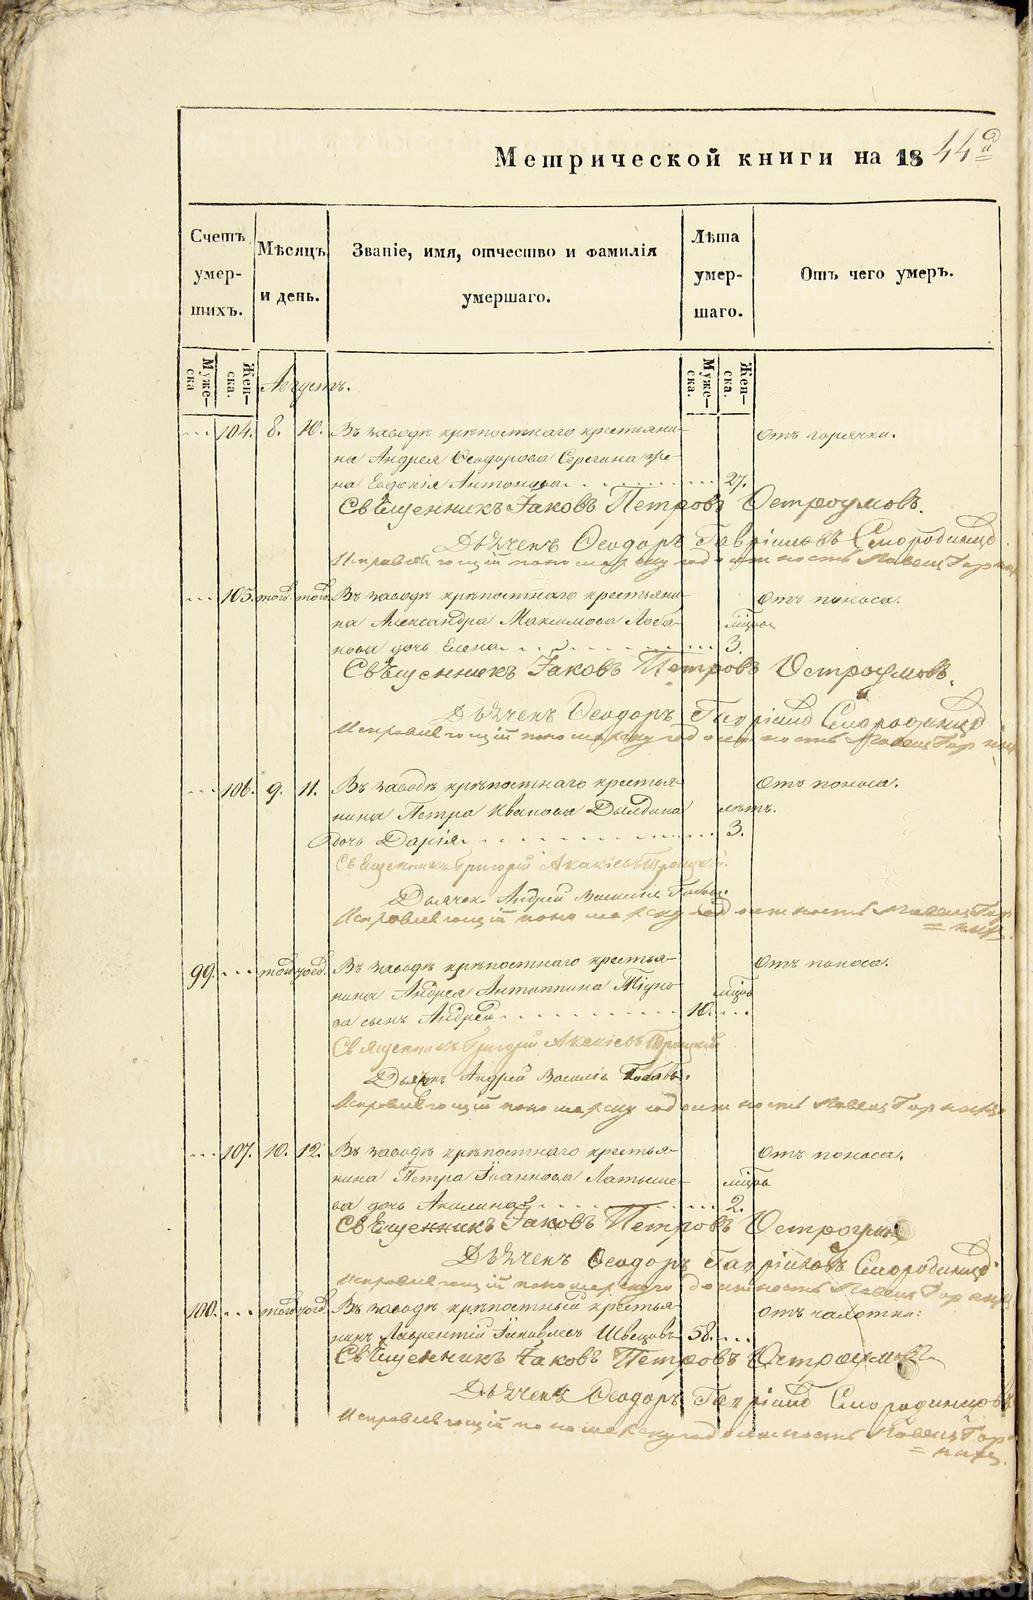 Метрической книги на 1844й
Счетъ умер-шихъ.
Мѣсяцъ и день.
Званіе, имя, отчество и фамилія умершаго.
Лѣта умер-шаго.
Отъ чего умеръ.
Муже-ска
Жен-ска.
Муже-ска.
Жен-ска.
Августъ.
104. 8. 10. Въ заводѣ крѣпостнаго крестьяни- Отъ горячки.
на Андрея Ѳеодорова Серегина же-
на Евгенія Антонова 27.
Священникъ Іаковъ Петровъ Остроумовъ.
Дьячекъ Ѳеодоръ Гавріиловъ Смородинцовъ
Исправляющій пономарскую должность Павелъ
105. того того Въ заводѣ крѣпостнаго крестьяни- Отъ поноса.
на Александра Максимова Лоба- мѣсяцъ
нова дочь Елена 3.
Священникъ Іаковъ Петровъ Остроумовъ.
Дьячекъ Ѳеодоръ Гавріиловъ Смородинцовъ
Исправляющій пономарскую должность Павелъ
106. 9. 11. Въ заводѣ крѣпостнаго крестья- Отъ поноса.
нина Петра Иванова Дылдина лѣтъ.
дочь Дарія 3.
Священникъ Григорій Акакіевъ Троицкій.
Дьячекъ Андрей Василіевъ
Исправляющій пономарскую должность Павелъ
99. того того Въ заводѣ крѣпостнаго крестья- Отъ поноса.
нина Андрея Антиппина Тіуно- мѣсяцъ
ва сынъ Андрей 10.
Священникъ Григорій Акакіевъ Троицкій
Дьячекъ Андрей Василіевъ
Исправляющій пономарскую должность Павелъ
107. 10. 12. Въ заводѣ крѣпостнаго крестья- Отъ поноса.
нина Петра Іоаннова Латыше- мѣсяцъ
ва дочь Акилина 2.
Священникъ Іаковъ Петровъ Остроумовъ
Дьячекъ Ѳеодоръ Гавріиловъ Смородинцовъ
Исправляющій пономарскую должность Павелъ
100. того того Въ заводѣ крѣпостный крестья- Отъ чахотки:
нинъ Лаврентій Іаковлевъ Швецовъ 58.
Священникъ Іаковъ Петровъ Остроумовъ
Дьячекъ Ѳеодоръ Гавріиловъ Смородинцовъ
Исправляющій пономарскую должность Павелъ